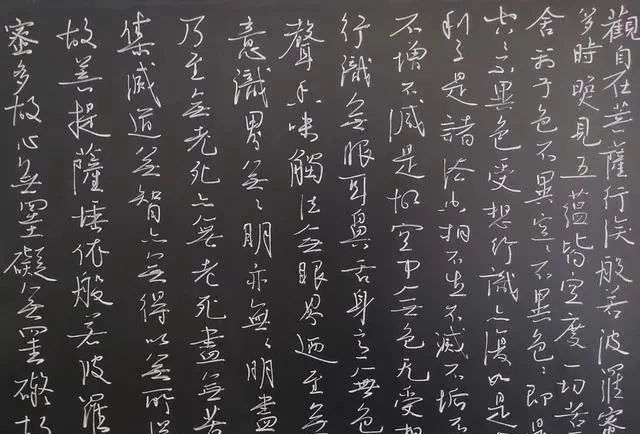 觀自在菩薩行深般若波羅蜜
多時照見五蘊皆空度一切苦
舍利子色不異空〻不異色〻即是
空〻不異色受想行識亦復如是
利子是諸法空相不生不滅不垢不
不增不減是故空中無色无受想
行識無眼耳鼻舌身意無色
聲香味觸法無眼界迺至無
意識界無〻明亦無〻明盡
乃至無老死亦無老死盡無苦
集滅道無智亦無得以無所得
故菩提薩埵依般若波羅
蜜多故心無罣礙無罣礙故